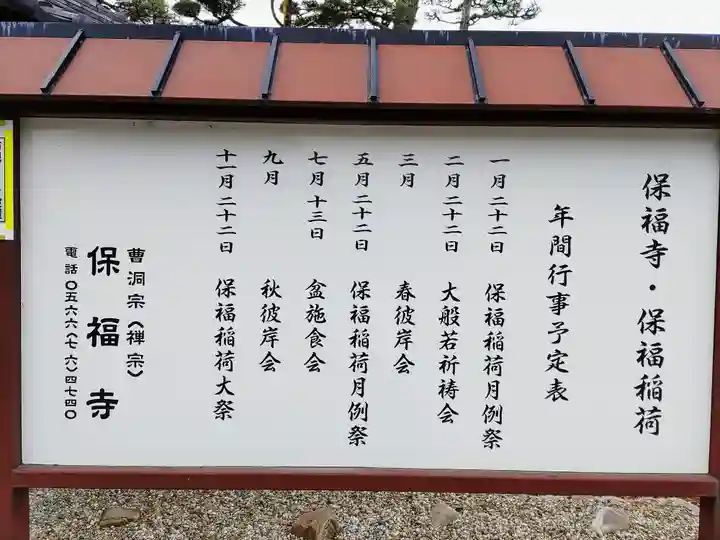 保福寺・保福稲荷
年間行事予定表
一月二十二日 保福稲荷月例祭
二月二十二日 大般若祈祷会
三月 春彼岸会
五月二十二日 保福稲荷月例祭
七月十三日 盆施食会
九月 秋彼岸会
十一月二十二日 保福稲荷大祭
曹洞宗(禅宗)
保福寺
電話〇五六六(七六)四七四〇